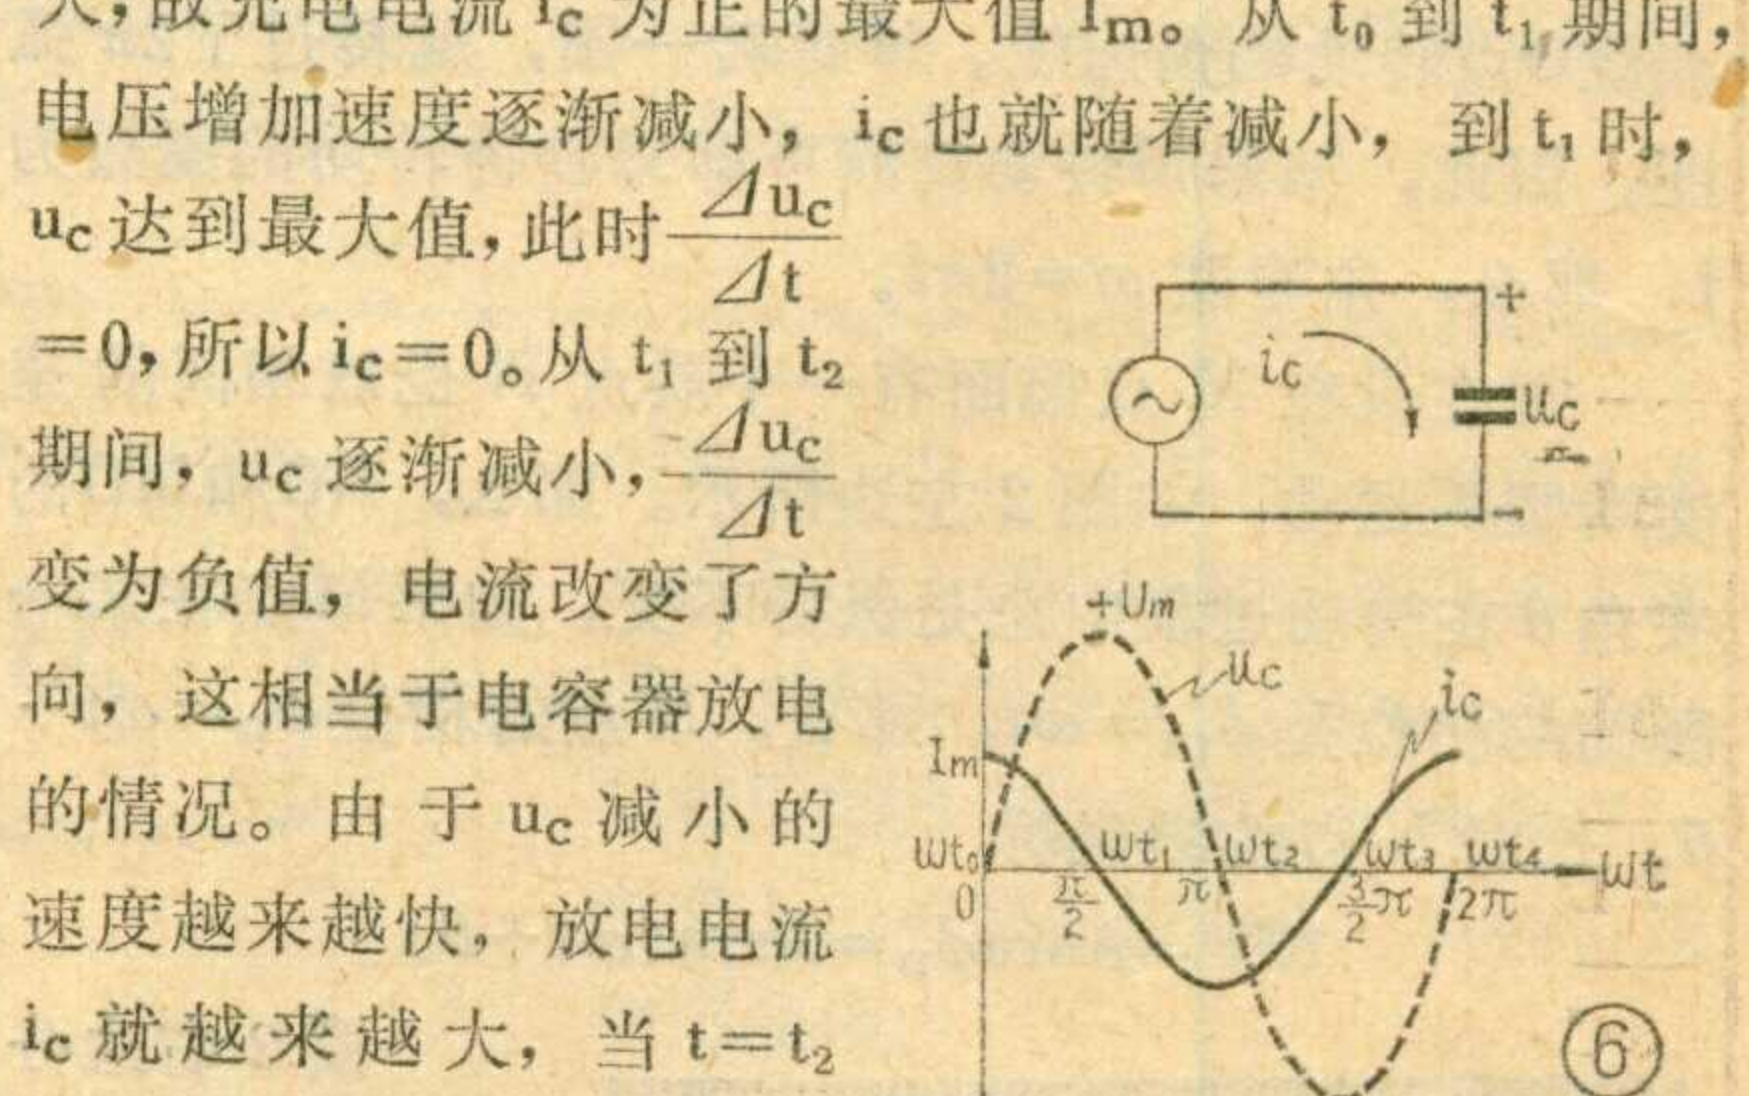 大,故充电电流 ic 为正的最大值 Im。从 t₀ 到 t₁ 期间,
电压增加速度逐渐减小, ic 也就随着减小, 到 t₁ 时,
uc 达到最大值,此时 Δuc/Δt
=0,所以 ic=0。从 t₁ 到 t₂
期间, uc 逐渐减小, Δuc/Δt
变为负值, 电流改变了方
向, 这相当于电容器放电
的情况。由于 uc 减小的
速度越来越快, 放电电流
ic 就越来越大, 当 t=t₂
+
ic
~
uc
−
+Um
uc
ic
Im
ωt₀ ωt₁ ωt₂ ωt₃ ωt₄ ωt
0 π/2 π 3/2π 2π
⑥